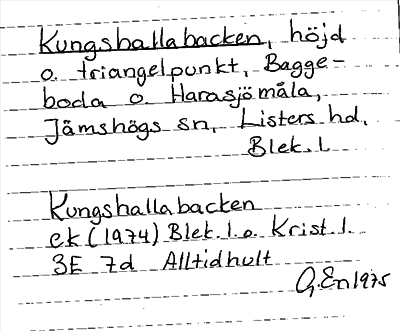 Kungshallabacken, höjd
o. triangelpunkt, Bagge-
boda o. Harasjömåla,
Jämshögs sn, Listers hd.
Blek. l.
Kungshallabacken
ek (1974) Blek. l. o. Krist. l.
3E 7d Alltidhult
G. En 1975